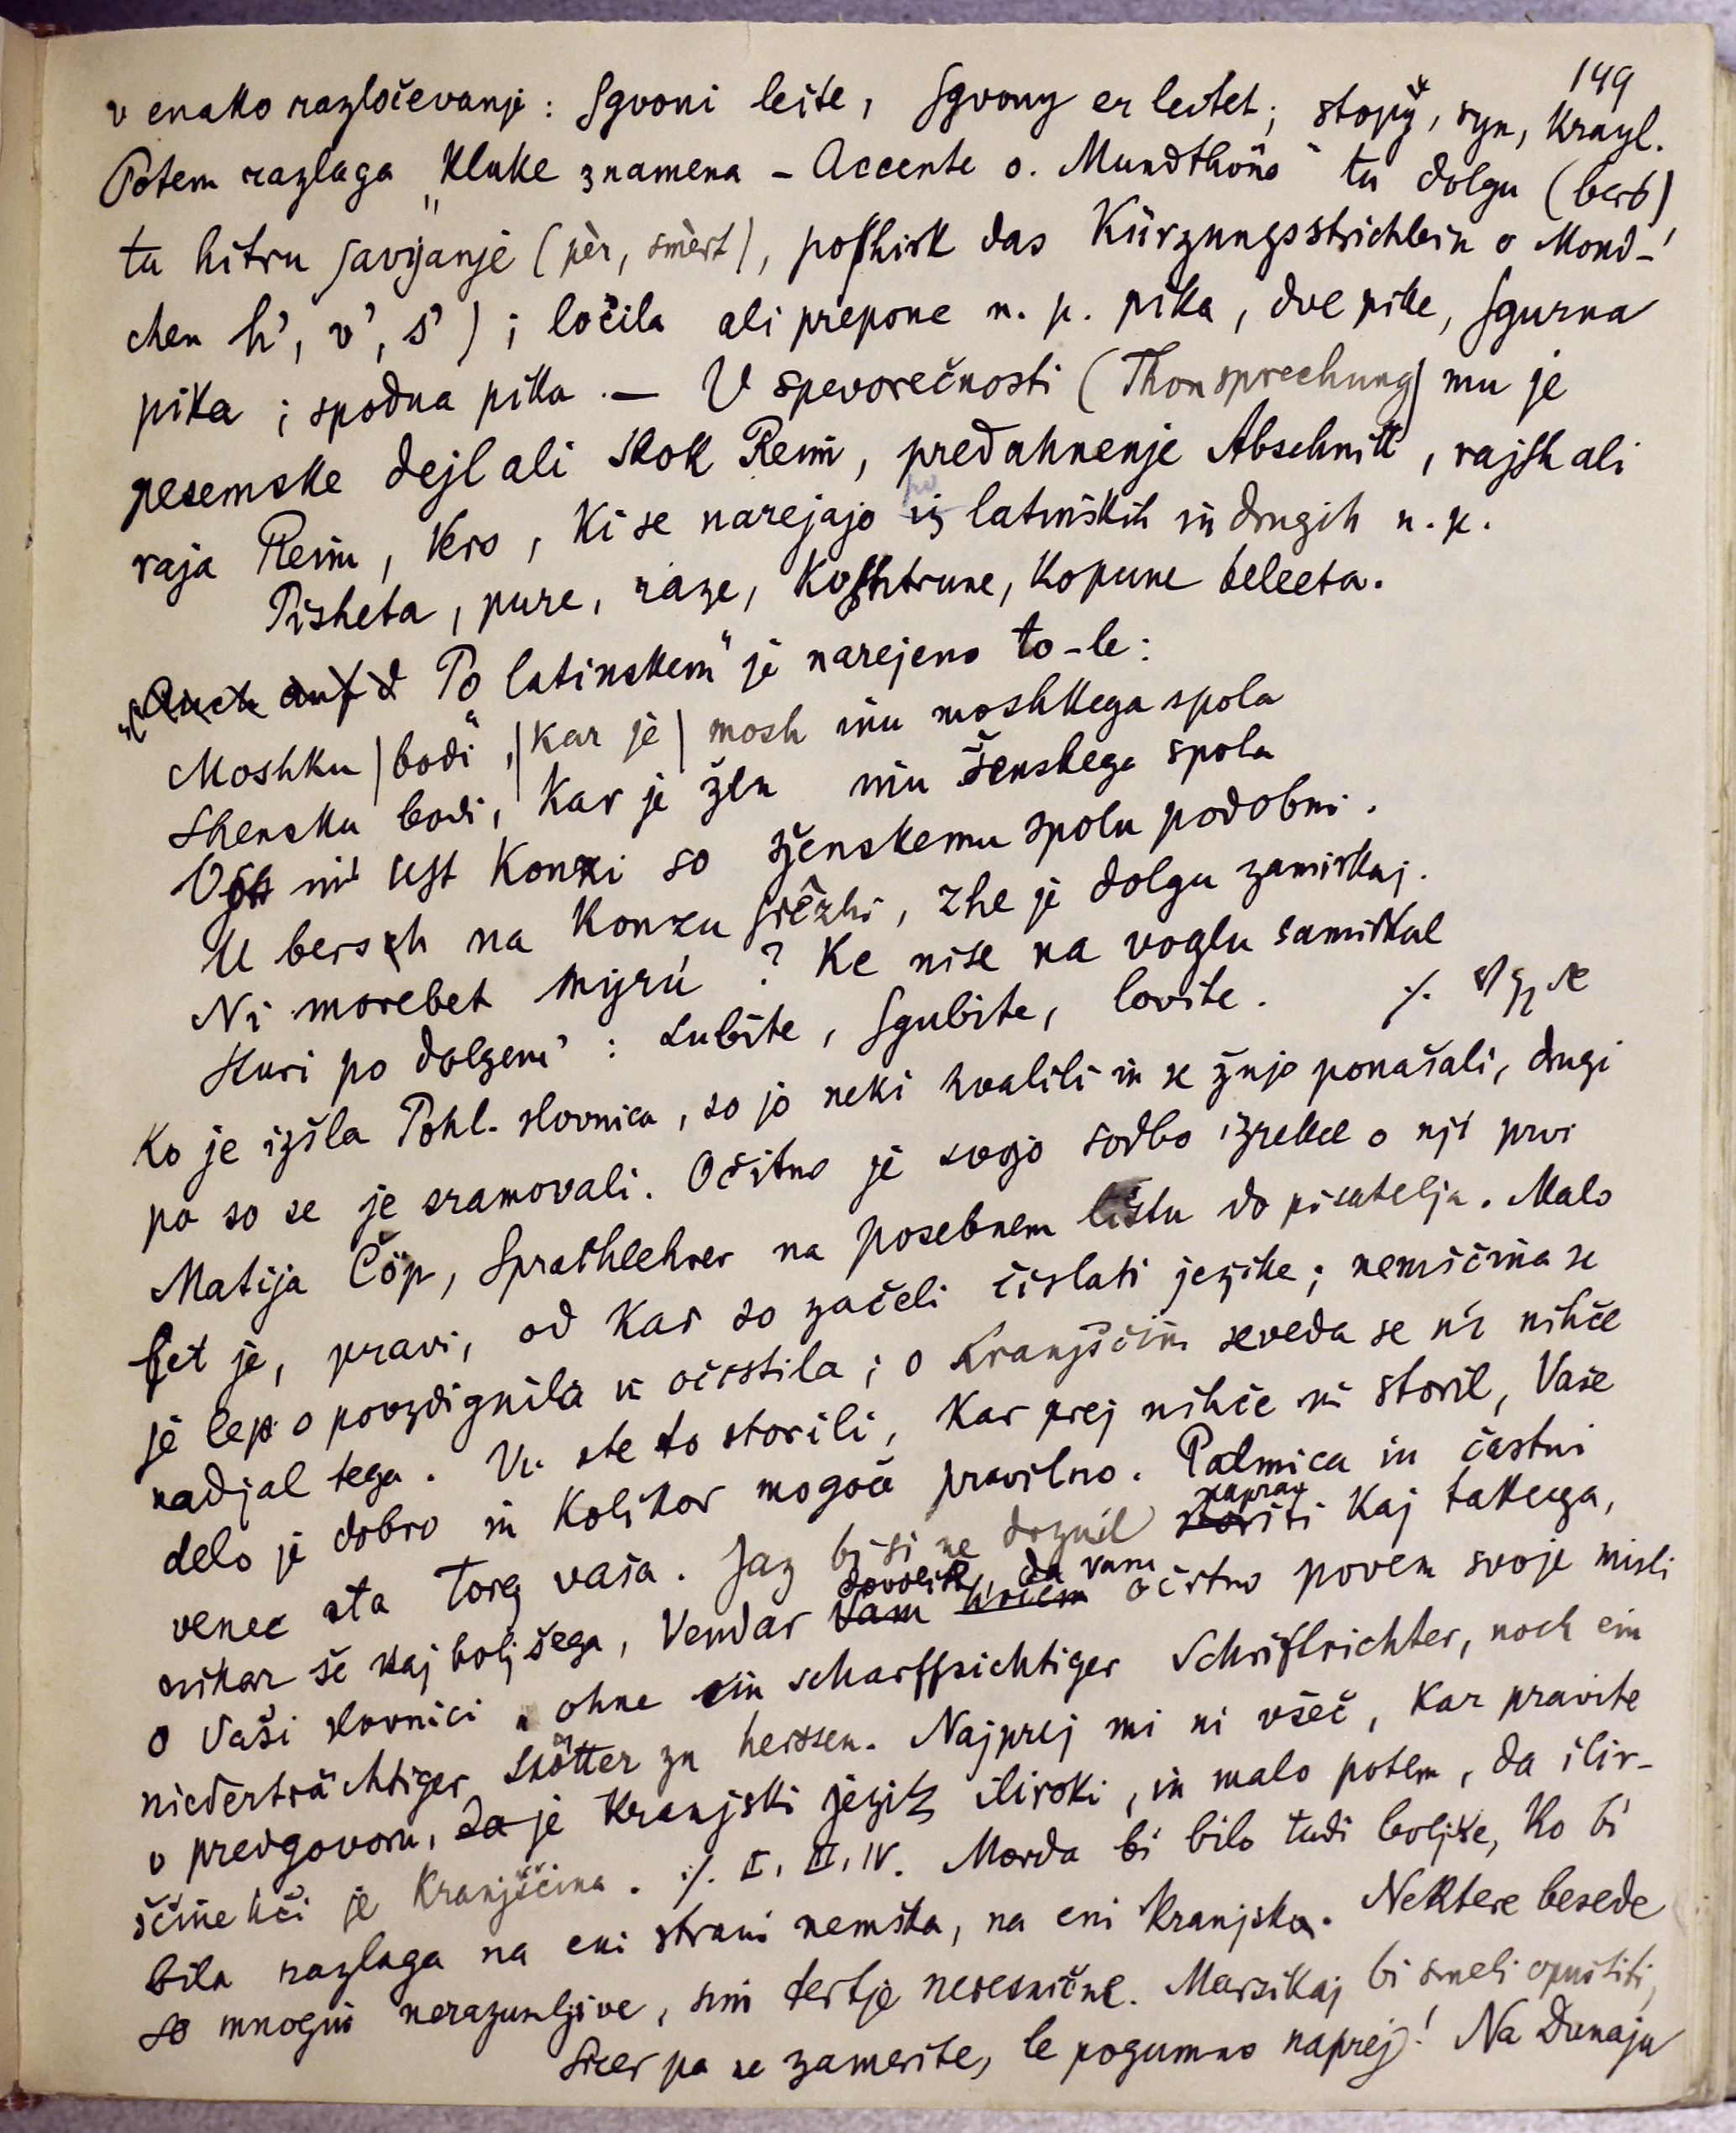 149
v enako razločevanje: ſgvoni leite, ſgvony er leitet; stopỹ, syn, krayl.
Potem razlaga „kluke znamena – Accente o. Mundthöne“ ta dolgu (berê)
ta hitru ſavijanje (pèr, smèrt), poſhirk das Kürzungsstrichlein o Mond-
chen h', v', s'); ločila ali prepone n. p. pika, dve pike, ſgurna
pika; spodna pika. — V spevorečnosti (Thonsprechung) mu je
pesemske dejl ali skok Reim, predahnenje Abschnitt, rajſh ali
raja Reim, Vers, ki se narejajo po latinskih in drugih n. p.
Pisheta, pure, raze, koſhtrune, kopune beleeta.
„Po latinskem“ je narejeno to-le:
Moshku | bodi“, | kar je | mosh inu moshkega spola
Shensku bodi, kar je žen inu ženskega spola
Vſih uſt konzi so ženskemu spolu podobni.
U bersh na konzu ſrêzhi, zhe je dolgu zamirkaj.
Ni morebet myrú? Ke nise na voglu samirkal
Kuri po dolgem': Lubite, ſgubite, lovite. ·/.
Ko je izšla Pohl. slovnica, so jo neki hvalili in se žnjo ponašali, drugi
pa so se je sramovali. Očitno je svojo sodbo izrekel o nji prvi
Matija Čöp, Sprachlehrer na posebnem listu do pisatelja. Malo
let je, pravi, od kar so začeli čislati jezike; nemščina se
je lepo povzdignila in očistila; o kranjščini seveda se ni nihče
nadjal tega. Vi ste to storili, kar prej nihče ni storil, Vaše
delo je dobro in kolikor mogoče pravilno. Palmica in častni
venec sta torej vaša. Jaz bi si ne drznil napraviti kaj takega,
nikar še kaj boljšega, vendar dovolite, da vam očitno povem svoje misli
o Vaši slovnici „ohne ein scharffsichtiger Schriftrichter, noch ein
niederträchtiger Spötter zu heissen. Najprej mi ni všeč, kar pravite
v predgovoru, da je kranjski jezik ilirski, in malo potem, da ilir-
ščine hči je kranjščina. ·/. I, II, IV. Morda bi bilo tudi boljše, ko bi
bila razlaga na eni strani nemška, na eni kranjska. Nektere besede
so mnogim nerazumljive, sim tertje neresnične. Marsikaj bi smeli opustiti,
sicer pa ne zamerite, le pogumno naprej! Na Dunaju